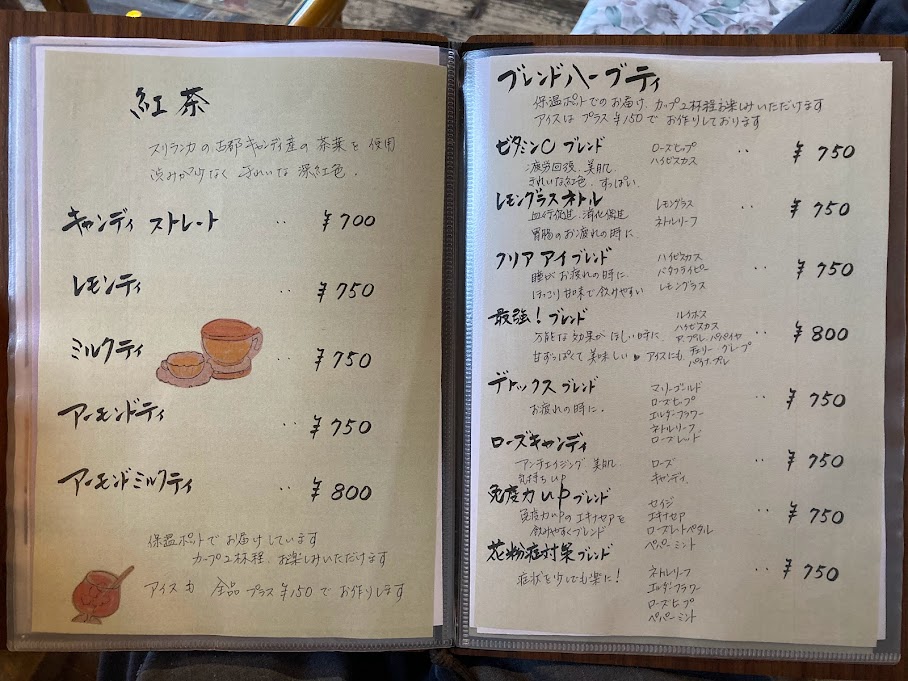 紅茶
スリランカの古都キャンディ産の茶葉を使用
渋みが少なく きれいな深紅色.
キャンディ ストレート ‥ ¥700
レモンティ ‥ ¥750
ミルクティ ‥ ¥750
アーモンドティ ‥ ¥750
アーモンドミルクティ ‥ ¥800
保温ポットでお届けしています
カップ2杯程、お楽しみいただけます
アイスも 全品プラス¥150で お作りします
ブレンドハーブティ
保温ポットでのお届け、カップ2杯程お楽しみいただけます
アイスは プラス¥150で お作りしております
ビタミンC ブレンド ‥ ¥750
ローズヒップ
ハイビスカス
疲労回復、美肌
きれいな紅色、すっぱい.
レモングラスネトル ‥ ¥750
レモングラス
ネトルリーフ
血行促進、消化促進
胃腸のお疲れの時に.
クリア アイ ブレンド ‥ ¥750
ハイビスカス
バタフライピー
レモングラス
瞳が お疲れの時に.
ほっこり甘味で飲みやすい
最強! ブレンド ‥ ¥800
ルイボス
ハイビスカス
アップル、パパイヤ
チェリー グレープ
パイナップル
万能な効果がほしい時に
甘ずっぱくて美味しい アイスにも
デトックス ブレンド ‥ ¥750
お疲れの時に.
マリーゴールド
ローズヒップ
エルダーフラワー
ネトルリーフ
ローズレッド
ローズキャンディ ‥ ¥750
アンチエイジング 美肌
気持ちup
ローズ
キャンディ
免疫力up ブレンド ‥ ¥750
免疫力upの エキナセアを
飲みやすくブレンド
セイジ
エキナセア
ローズレッドペタル
ペパーミント
花粉症対策ブレンド ‥ ¥750
症状を少しでも楽に!
ネトルリーフ
エルダーフラワー
ローズヒップ
ペパーミント